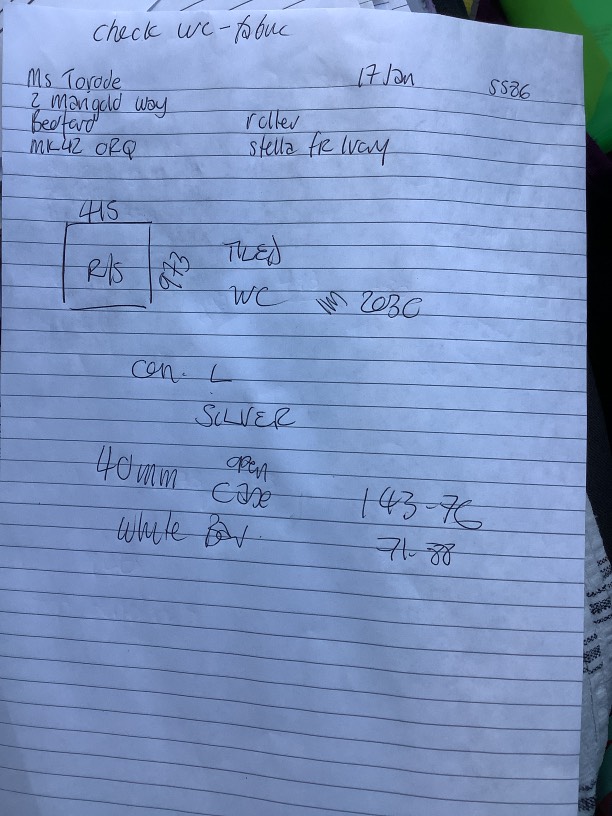 check wc-fabric
Ms Torode 17 Jan 5526
2 marigold way
Bedford roller
MK42 0RQ stella FR Ivory
415
R/S 973 TILED
WC IM 203C
con. L
SILVER
40mm open
case 143-76
white Bar. 71-88